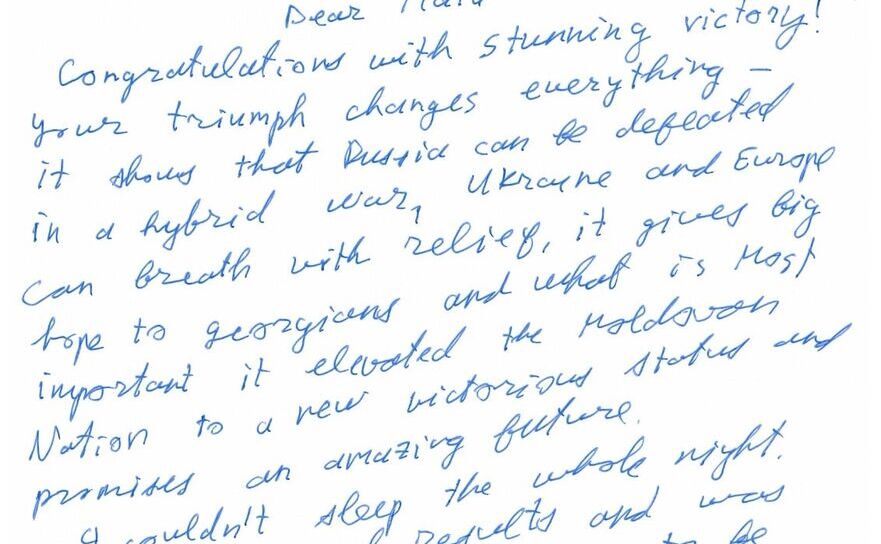 Dear Maia
Congratulations with stunning victory!
your triumph changes everything –
it shows that Russia can be defeated
in a hybrid war, Ukrayne and Europe
can breath with relief, it gives big
hope to georgians and what is most
important it elevated the Moldovan
Nation to a new victorious status and
promises an amazing future.
I couldn't sleep the whole night.
results and was
to be